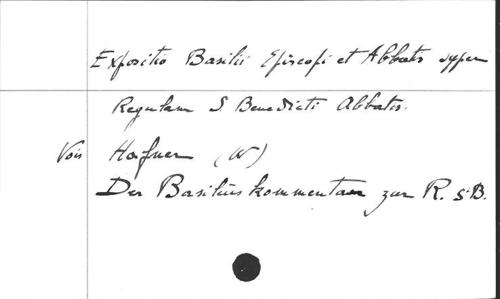 Expositio Basilii Episcopi et Abbatis super
Regulam S Benedicti Abbatis.
Vois Hafner (W)
Der Basilius kommentar zur R. S. B.